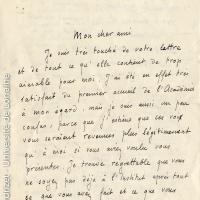 Mon cher ami
Je suis très touché de votre lettre
et de tout ce qu'elle contient de trop
aimable pour moi. J'ai été en effet très
satisfait du premier accueil de l'Académie
à mon égard, mais je suis aussi un peu
confus, parce que j'estime que ces voix
vous seraient revenues plus légitimement
qu'à moi si vous aviez voulu vous
présenter. Je trouve regrettable que vous
ne soyez pas déjà à l'Institut après tout
ce que vous avez fait et ce que vous
Université de Lorraine